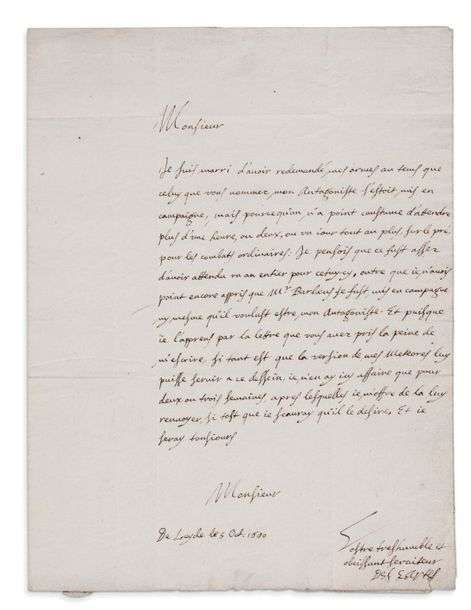 Monsieur
Je suis marri d'avoir redemandé mes armes au tems que
celuy que vous nommez mon Antagoniste s'estoit mis en
campagne, mais pourcequ'on n'a point coustume d'attendre
plus d'une heure, ou deux, ou un iour tout au plus sur le pré
pour les combats ordinaires. Je pensois que ce fust assez
d'avoir attendu un an entier pour cetuycy, outre que ie n'avois
point encore appris que Mr se fust mis en campagne
ny mesme qu'il voulust estre mon Antagoniste. Et puisque
ie l'apprens par la lettre que vous avez pris la peine de
m'escrire. Si tant est que la version de mes Meteores luy
puisse servir a ce dessein, ie n'en ay affaire que pour
deux ou trois semaines apres lesquelles ie m'offre de la luy
renvoyer, si tost que ie scauray qu'il le desire, Et ie
seray tousiours
Monsieur
De Leyde le 5 Oct. 1640
Vostre tres humble et
obeissant serviteur